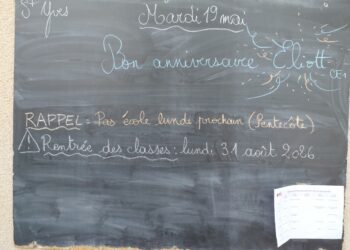 St Yves
Mardi 19 mai
Bon anniversaire Eliott
CE1
RAPPEL : Pas école lundi prochain (Pentecôte)
Rentrée des classes : lundi 31 août 2026